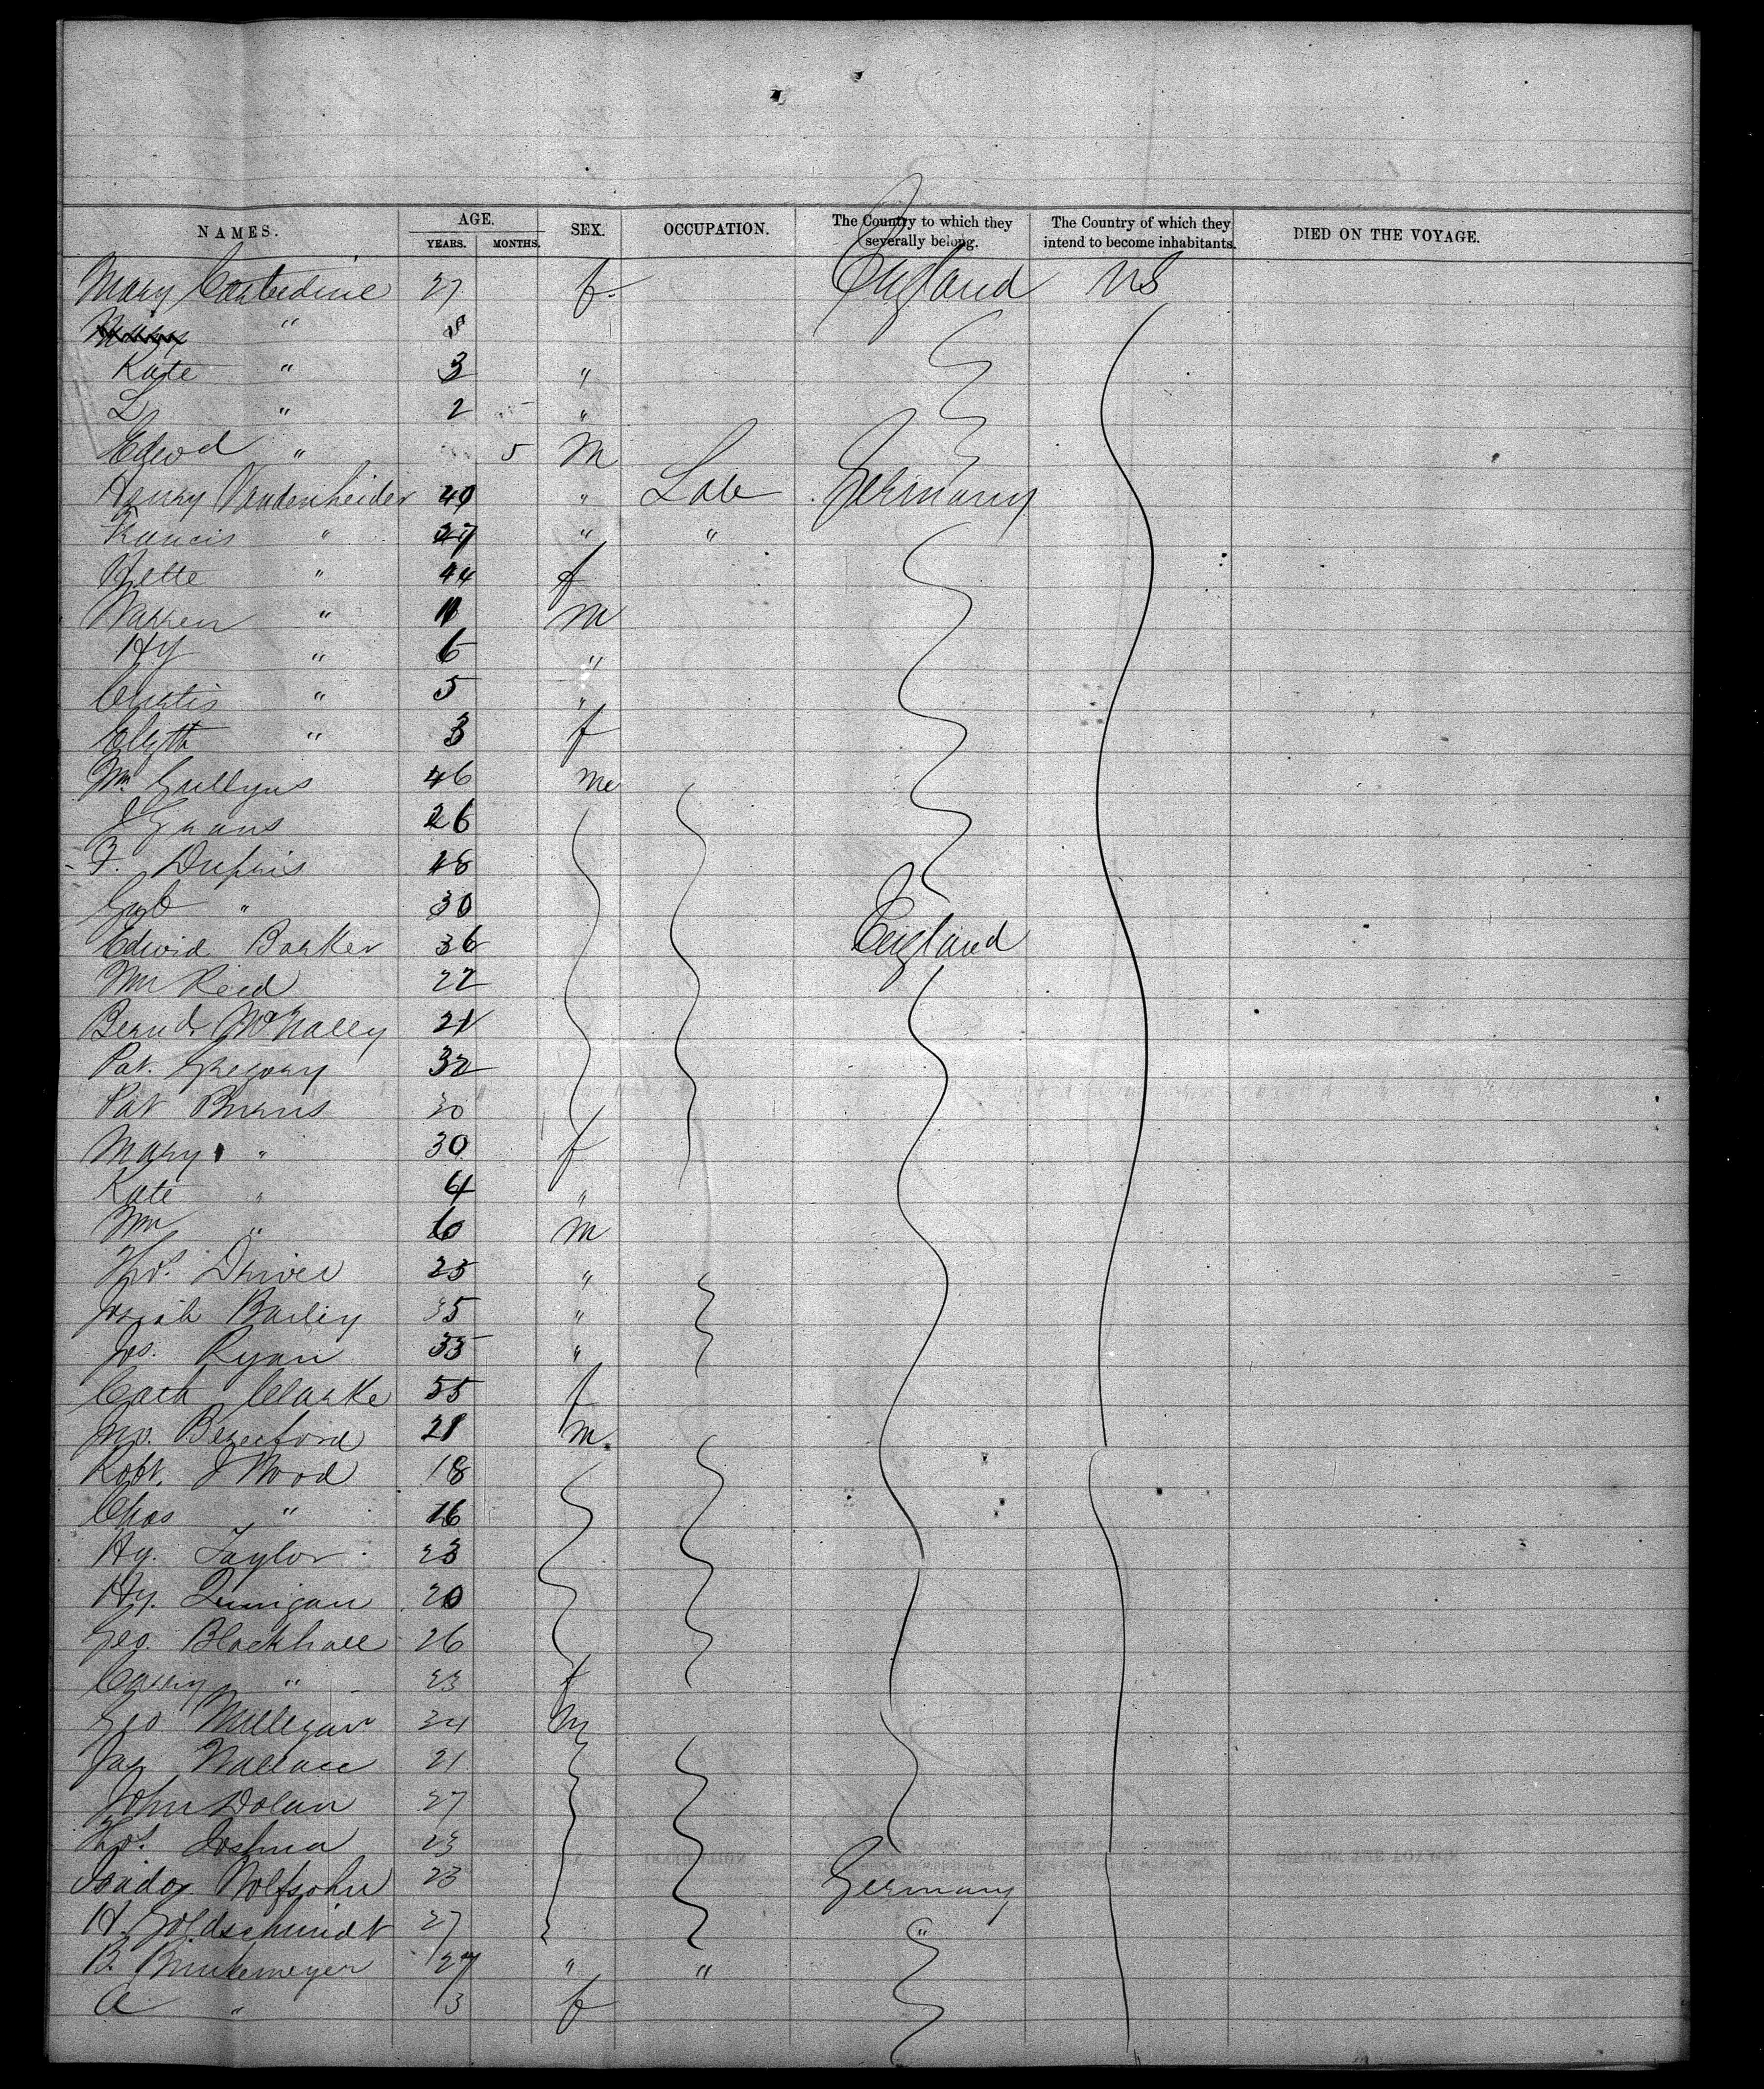 NAMES. AGE. SEX. OCCUPATION. The Country to which they severally belong. The Country of which they intend to become inhabitants. DIED ON THE VOYAGE.
YEARS. MONTHS.
Mary 27 f. England US
" 8
Kate " 3 "
L " 2 "
Edwd " 5 M
Henry Vandenheider 49 " Lab Germany
Francis " 27 " "
Nette " 44 f
Warren " 11 m
Hy " 6 "
" 5 "
" 3 f
Wm Gullyus 46 m
J Evans 26
F. 28
" 30
Edwid Barker 36 England
Wm Reid 22
Bernd McNally 21
Pat. Gregory 32
Pat Burns 30
Mary " 30 f
Kate " 4 "
Wm " 6 m
Thos. Driver 25 "
Josiah Bailey 35 "
Jos. Ryan 35 "
Cath Clarke 55 f
Jno. Bereford 21 m
Robt. J Wood 18
Chas " 16
Hy. Taylor 23
Hy. 20
Geo. Blackhall 26
Carry " 23 f
Geo Milligan 24 m
Jas Wallace 21
John Dolan 27
Thos. Joshua 23
Isidor Wolfsohn 23 Germany
H. Goldschmidt 27 "
B. Brinkemeyer 27 " "
A " 3 f